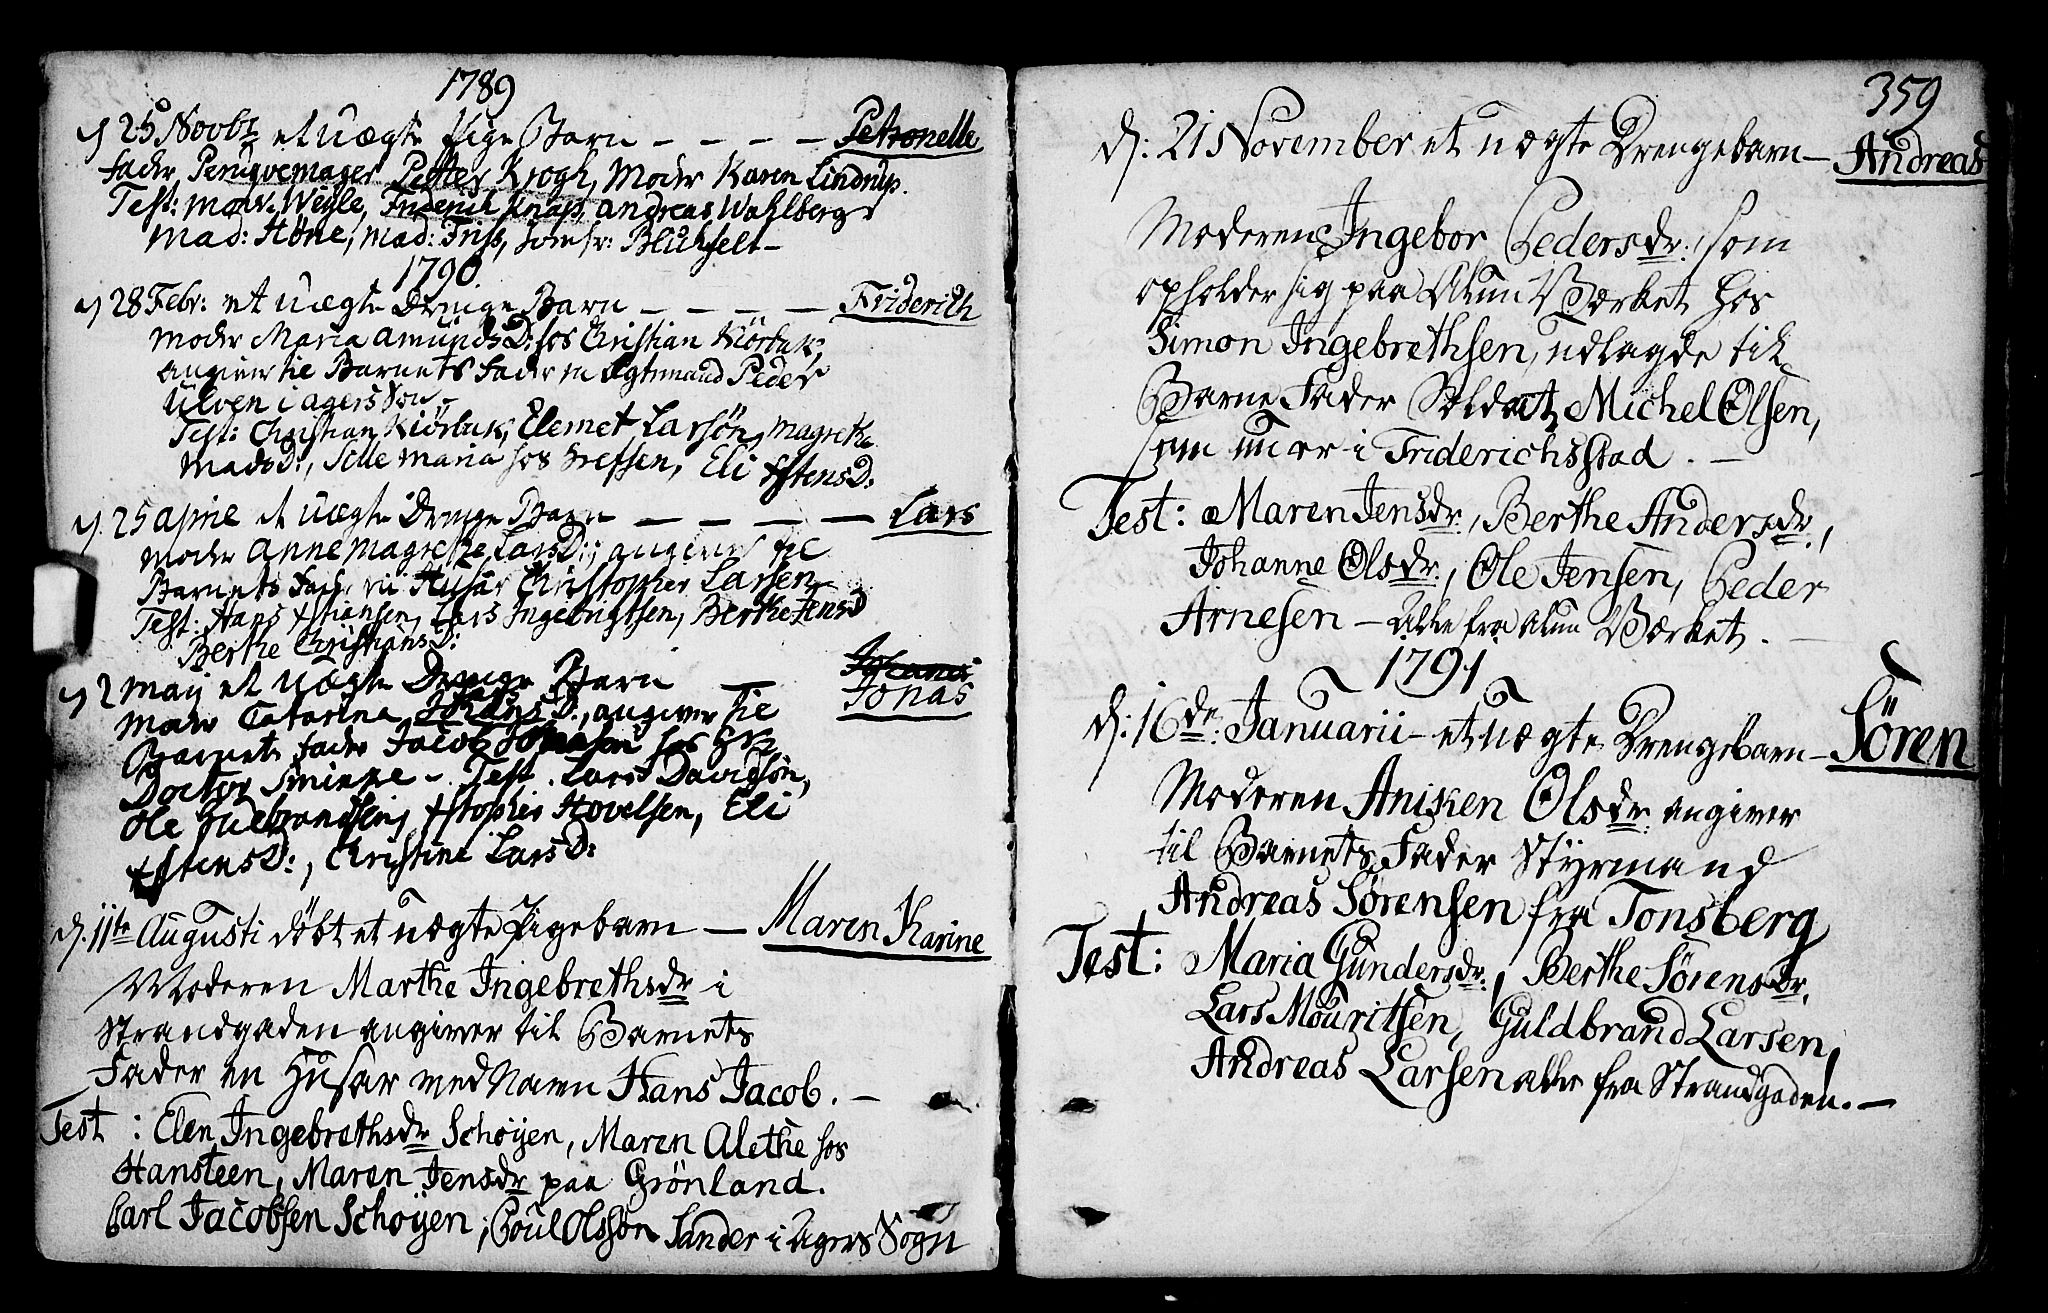 1789
d 25 Novbr et uægte Pige Barn - - - - Petronelle
Fader Peruqvemager Petter Krogh, Moder Karen Lindrup.
Test: Mad. Weyle, Friderich Knap, Andreas Wahlberg
Mad: Höne, Mad: Friis, Jomfr: Blichfelt -
1790
d 28 Febr: et uægte Drenge Barn - - - - Friderich
Moder Maria Amunds D: hos Christian Kiörbuk,
angiver til Barnets Fader en Ægtemand Peder
Ulven i Agers Sogn
Test: Christian Kiörbuk, Elemet Larsön, Magrethe
Mads D:, Maria hos Grefsen, Eli Estens D:
d. 25 Aprile et uægte Drenge Barn - - - - Lars
Moder Anne Magrethe Lars D:, angiver til
Barnets Fader en Husar Christopher Larsen
Test: Hans Hansen, Lars Ingebrigtsen, Berthe Jens D
Berthe Christians D:
d 2 Maij et uægte Drenge Barn - Johannes
Jonas
Moder Catarina Lars D:, angiver til
Barnets Fader Jacob hos Hr
Doctor - Test. Lars Davidsön,
Ole Gulbrandsen, Hovelsen, Eli
Estens D:, Christine Lars D:
d. 11te Augusti döbt et uægte Pigebarn - Maren Karine
Moderen Marthe Ingebrethsdr i
Strandgaden angiver til Barnets
Fader en Husar med Navn Hans Jacob. -
Test: Elen Ingebrethsdr Schøyen, Maren Alethe hos
Hansteen, Maren Jensdr paa Grönland.
Carl Jacobsen Schøyen, Poul Olssön Sander i Agers Sogn
359
d. 21 November et uægte Drengebarn - Andreas
Moderen Ingebor Pedersdr: som
opholder sig paa Alun Værket hos
Simon Ingebrethsen, udlagde til
Barne Fader Soldat Michel Olsen,
som nu er i Friderichsstad. -
Test: Maren Jensdr:, Berthe Andersdr:,
Johanne Olsdr:, Ole Jensen, Peder
Arnesen - Alle fra Alun Værket. -
1791
d: 16de: Januarii - et uægte Drengebarn - Sören
Moderen Aniken Olsdr: angiver
til Barnets Fader Styrmand
Andreas Sørensen fra Tonsberg
Test: Maria Gundersdr:, Berthe Sørensdr.
Lars Mouritsen, Guldbrand Larsen,
Andreas Larsen alle fra Strandgaden. -